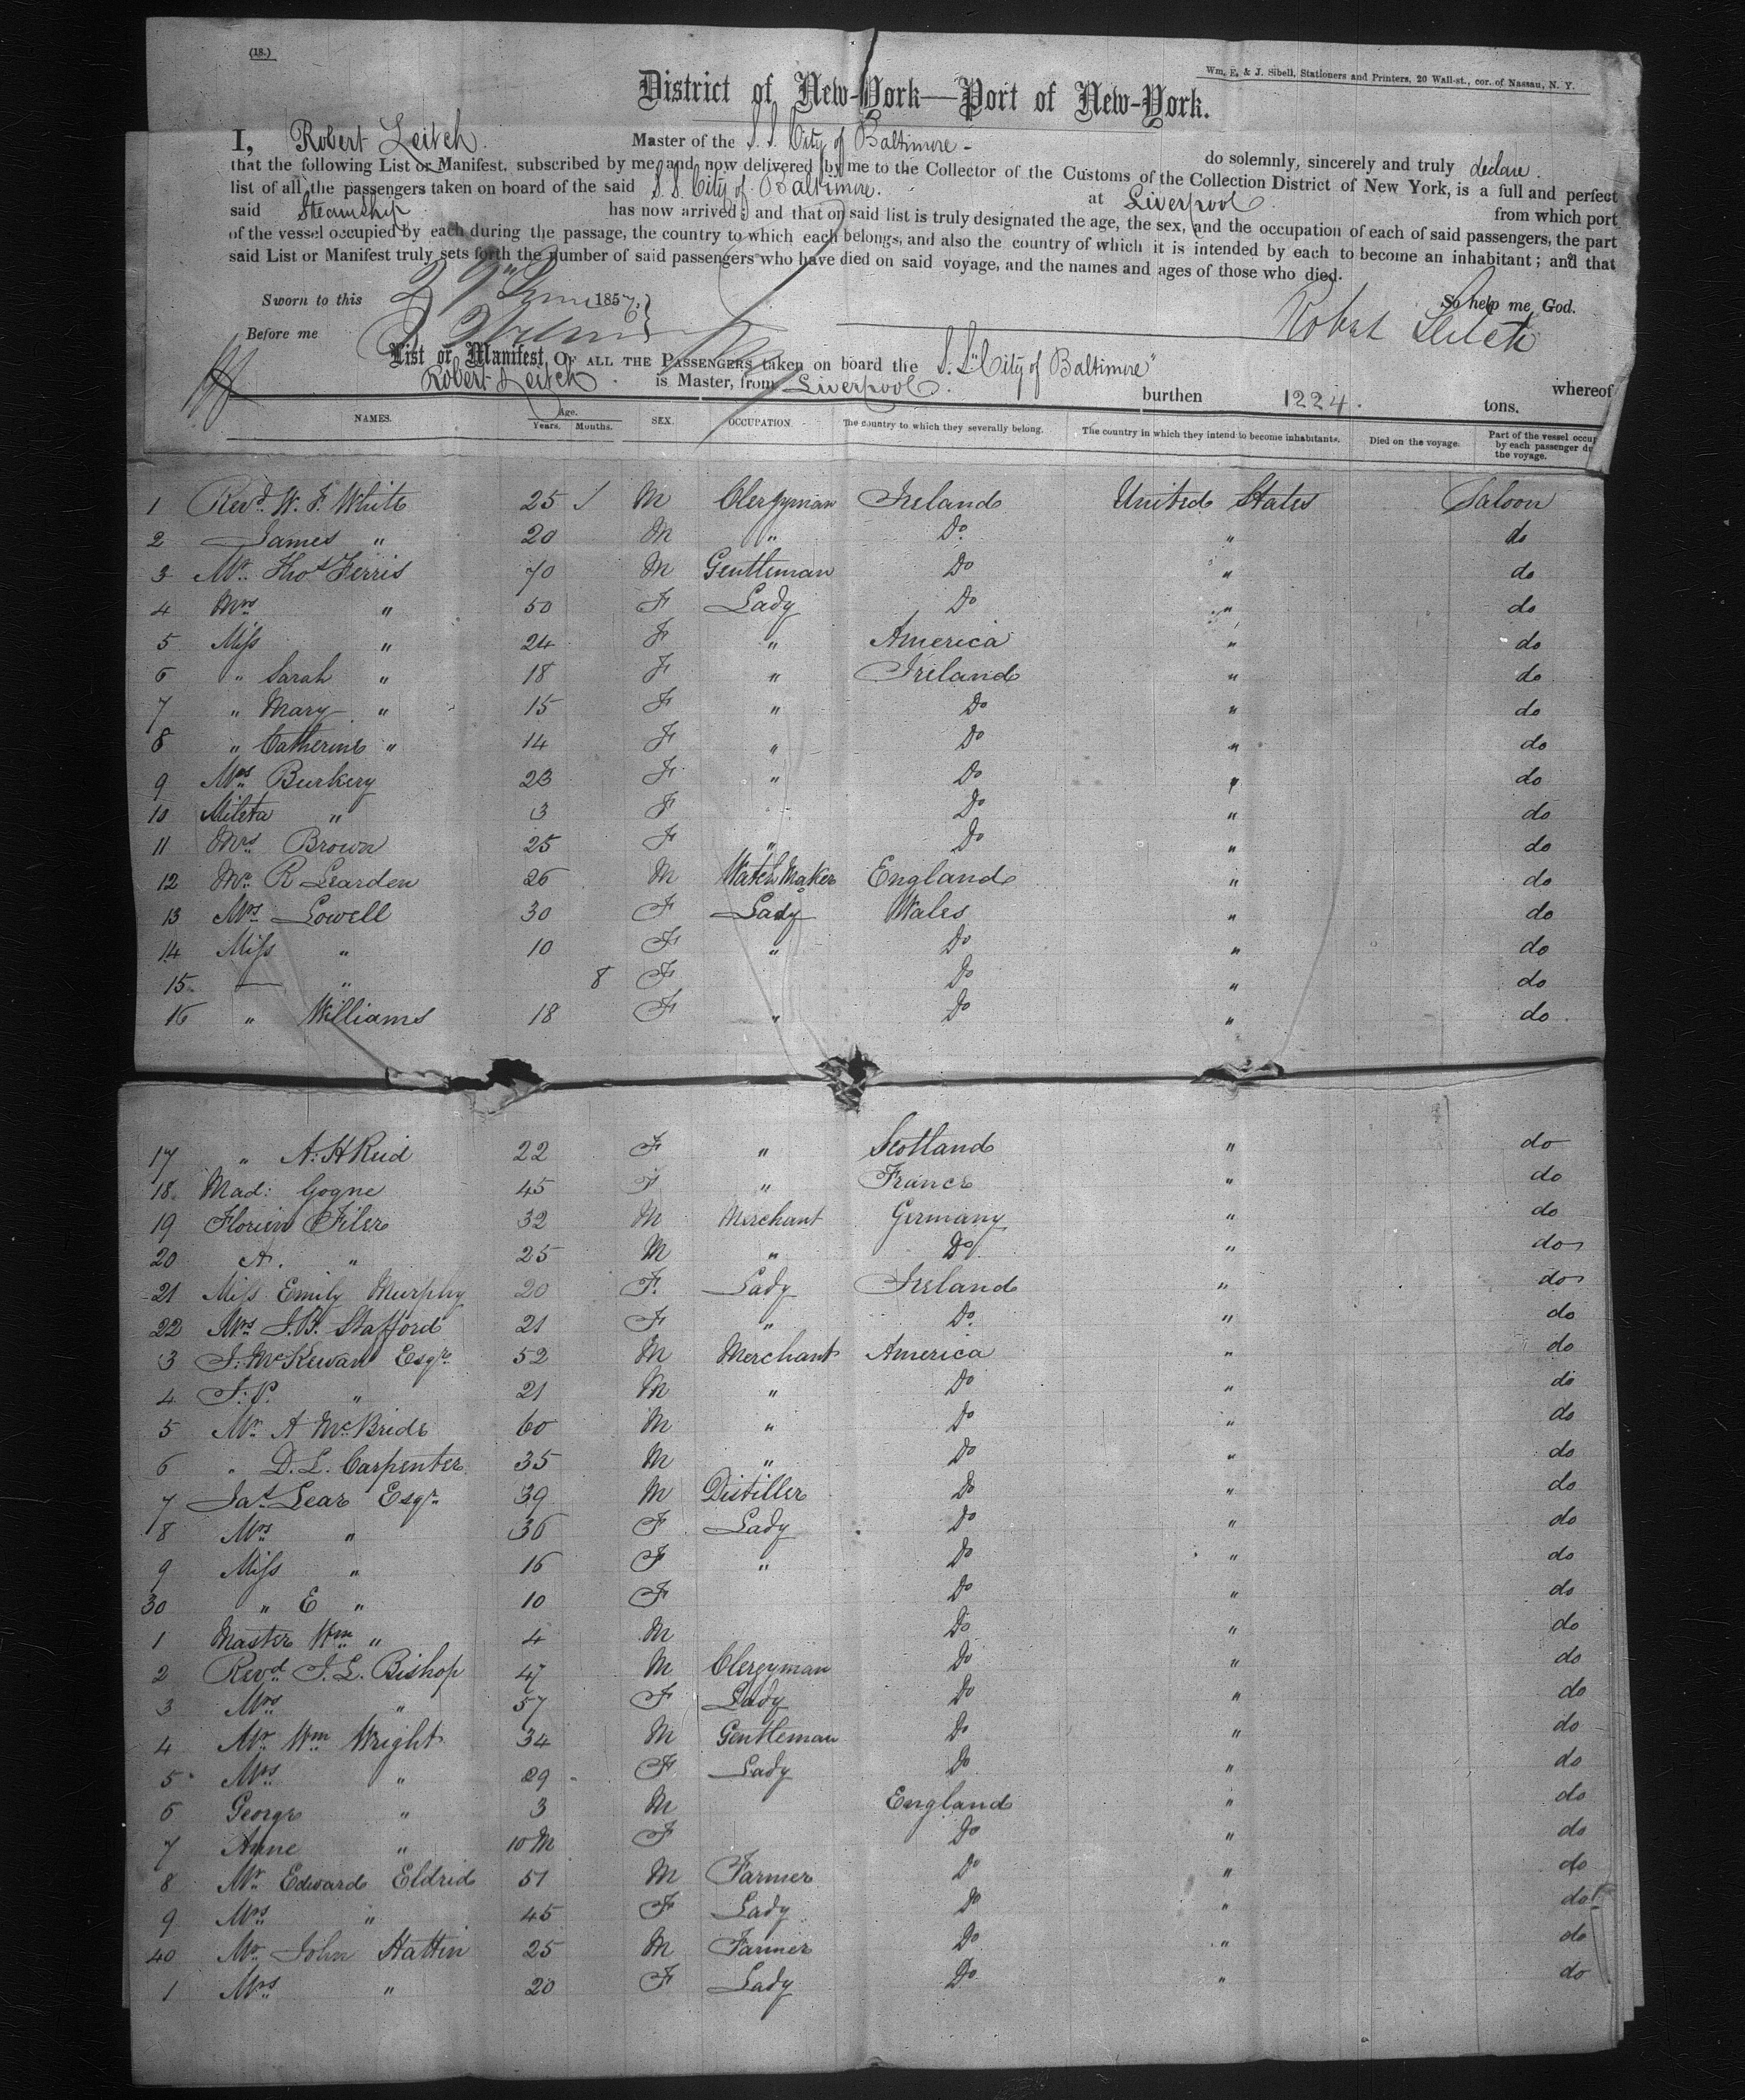 (18.)
Wm. E. & J. Sibell, Stationers and Printers, 20 Wall-st., cor. of Nassau, N. Y.
District of New-York—Port of New-York.
I, Robert Leitch. Master of the S. S. City of Baltimore - do solemnly, sincerely and truly declare.
that the following List or Manifest, subscribed by me, and now delivered by me to the Collector of the Customs of the Collection District of New York, is a full and perfect
list of all the passengers taken on board of the said S. S. City of Baltimore. at Liverpool. from which port
said Steamship has now arrived; and that on said list is truly designated the age, the sex, and the occupation of each of said passengers, the part
of the vessel occupied by each during the passage, the country to which each belongs, and also the country of which it is intended by each to become an inhabitant; and that
said List or Manifest truly sets forth the number of said passengers who have died on said voyage, and the names and ages of those who died.
So help me, God.
Sworn to this 29" June 1857.
Robert Leitch
Before me
List or Manifest OF ALL THE PASSENGERS taken on board the S. S. "City of Baltimore" whereof
Robert Leitch. is Master, from Liverpool. burthen 1224. tons.
NAMES. Age. Years. Months. SEX. OCCUPATION. The country to which they severally belong. The country in which they intend to become inhabitants. Died on the voyage. Part of the vessel occup by each passenger du the voyage.
1 Revd. W. F. White 25 M Clergyman Ireland United States Saloon
2 James " 20 M " Do. " do
3 Mr. Thos Ferris 70 M Gentleman Do " do
4 Mrs " 50 F Lady Do " do
5 Miss " 24 F " America " do
6 " Sarah " 18 F " Ireland " do
7 " Mary " 15 F " Do " do
8 " Catherine " 14 F " Do " do
9 Mrs Burkery 23 F " Do " do
10 Mileta " 3 F Do " do
11 Mrs Brown 25 F " Do " do
12 Mr. R Learden 26 M Watch Maker England " do
13 Mrs Lowell 30 F Lady Wales " do
14 Miss " 10 F " Do " do
15 — " 8 F Do " do
16 " Williams 18 F " Do " do
17 " A. H Reid 22 F " Scotland " do
18 Mad: Gogne 45 F " France " do
19 Florien Filer 32 M Merchant Germany " do
20 A. " 25 M " Do " do
21 Miss Emily Murphy 20 F. Lady Ireland " do
22 Mrs J. B. Stafford 21 F " Do. " do
3 J. McKewan Esqre. 52 M Merchant America " do
4 J. P. " 21 M " Do " do
5 Mr. A McBride 60 M " Do " do
6 " D. L. Carpenter 35 M " Do " do
7 Jas. Lear Esqr. 39 M Distiller Do " do
8 Mrs " 36 F Lady Do " do
9 Miss " 16 F " Do " do
30 " E " 10 F Do " do
1 Master Wm " 4 M Do " do
2 Revd. J. L. Bishop 47 M Clergyman Do " do
3 Mrs " 57 F Lady Do " do
4 Mr. Wm Wright 34 M Gentleman Do " do
5 Mrs " 29 F Lady Do " do
6 George " 3 M England " do
7 Anne " 10 M F Do " do
8 Mr. Edward Eldrid 51 M Farmer Do " do
9 Mrs " 45 F Lady Do " do
40 Mr. John Hattin 25 M Farmer Do " do
1 Mrs " 20 F Lady Do " do